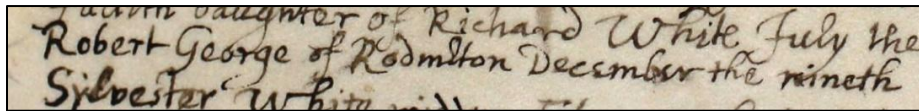 Judith daughter of Richard White July the
Robert George of Rodmlton December the nineth
Sylvester White